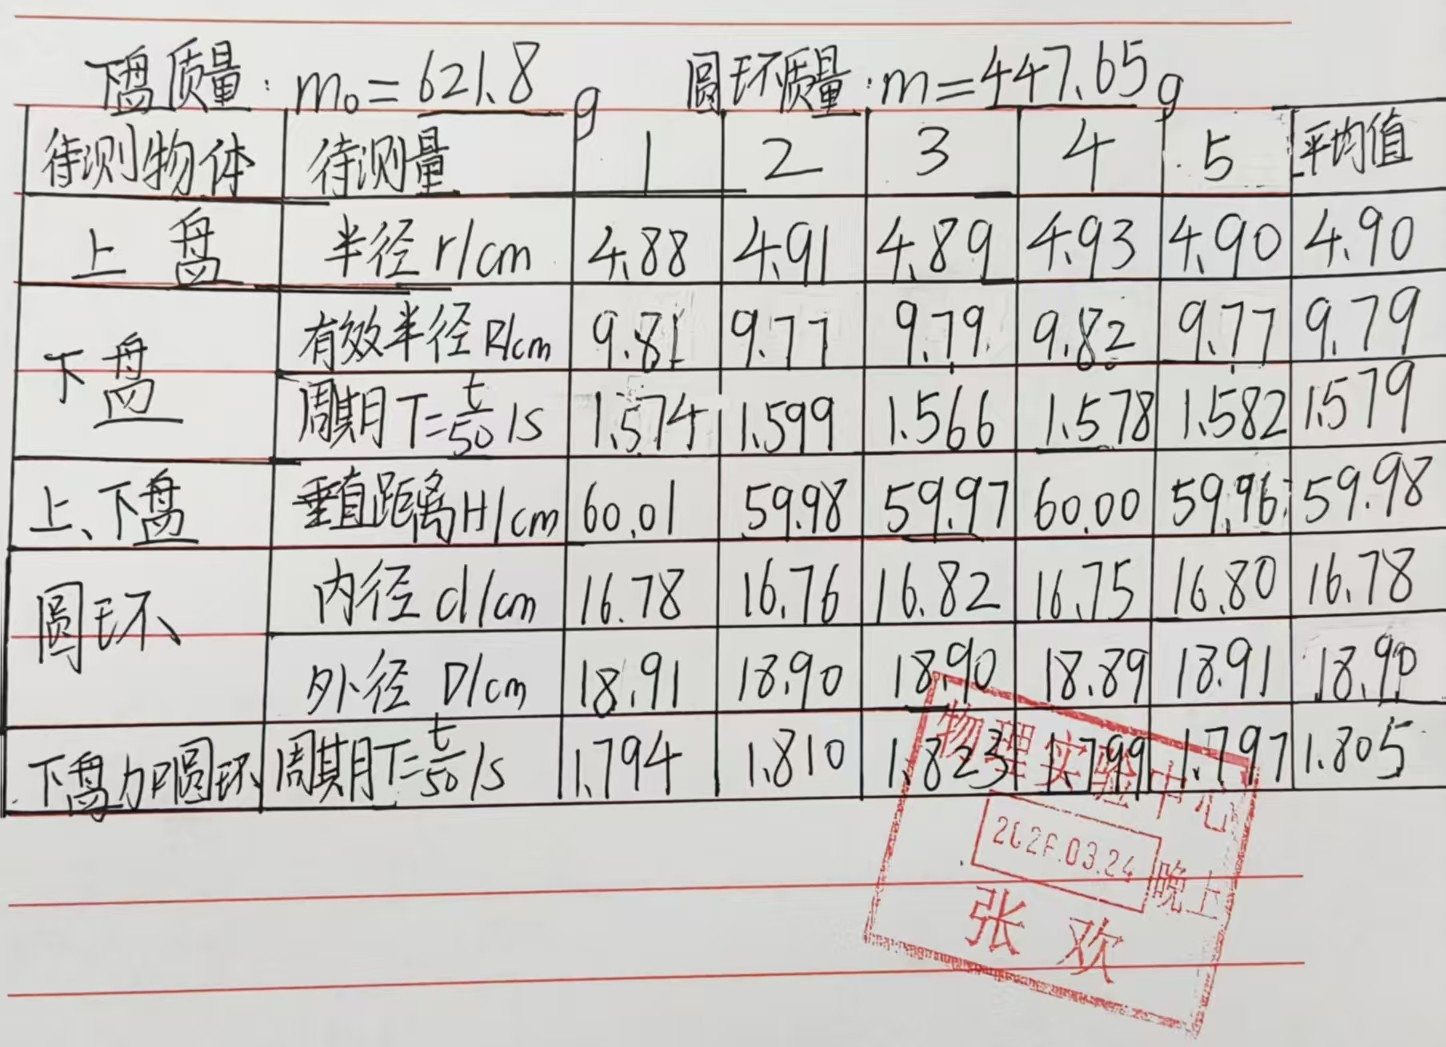 下盘质量:m₀=621.8g 圆环质量:m=447.65g
待测物体 待测量 1 2 3 4 5 平均值
上盘 半径r/cm 4.88 4.91 4.89 4.93 4.90 4.90
下盘 有效半径R/cm 9.81 9.77 9.79 9.82 9.77 9.79
周期T=t/50/s 1.574 1.599 1.566 1.578 1.582 1.579
上、下盘 垂直距离H/cm 60.01 59.98 59.97 60.00 59.96 59.98
圆环 内径d/cm 16.78 16.76 16.82 16.75 16.80 16.78
外径D/cm 18.91 18.90 18.90 18.89 18.91 18.90
下盘加圆环 周期T=t/50/s 1.794 1.810 1.823 1.799 1.797 1.805
物理实验中心
2026.03.24 晚上
张欢